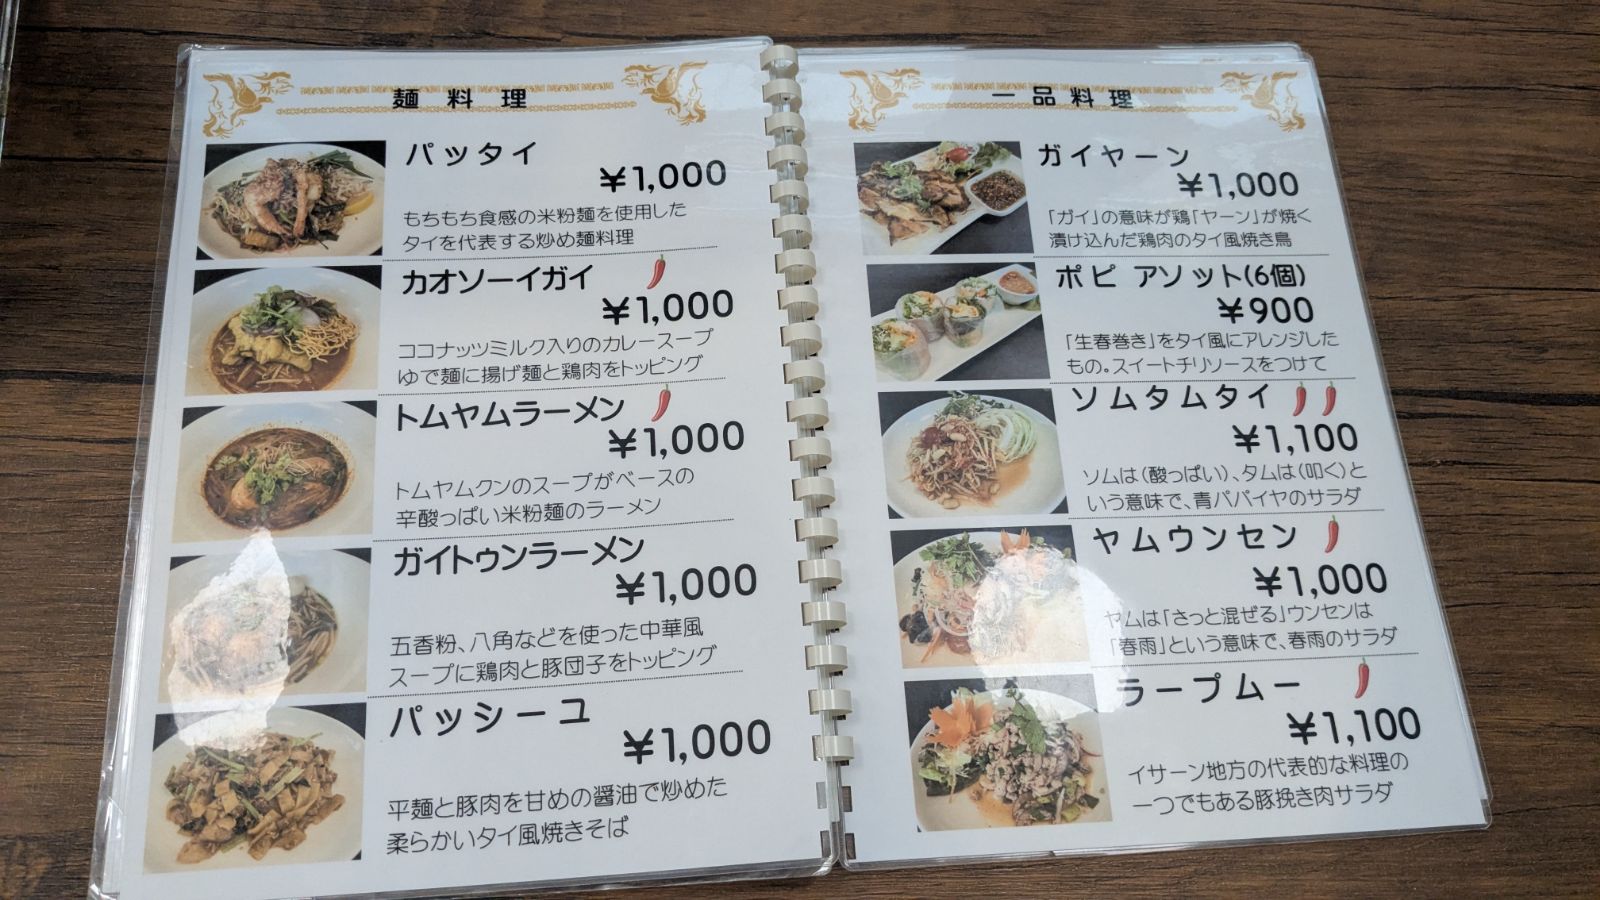 麺料理
パッタイ
¥1,000
もちもち食感の米粉麺を使用した
タイを代表する炒め麺料理
カオソーイガイ
¥1,000
ココナッツミルク入りのカレースープ
ゆで麺に揚げ麺と鶏肉をトッピング
トムヤムラーメン
¥1,000
トムヤムクンのスープがベースの
辛酸っぱい米粉麺のラーメン
ガイトゥンラーメン
¥1,000
五香粉、八角などを使った中華風
スープに鶏肉と豚団子をトッピング
パッシーユ
¥1,000
平麺と豚肉を甘めの醤油で炒めた
柔らかいタイ風焼きそば
一品料理
ガイヤーン
¥1,000
「ガイ」の意味が鶏「ヤーン」が焼く
漬け込んだ鶏肉のタイ風焼き鳥
ポピ アソット(6個)
¥900
「生春巻き」をタイ風にアレンジした
もの。スイートチリソースをつけて
ソムタムタイ
¥1,100
ソムは(酸っぱい)、タムは(叩く)と
いう意味で、青パパイヤのサラダ
ヤムウンセン
¥1,000
ヤムは「さっと混ぜる」ウンセンは
「春雨」という意味で、春雨のサラダ
ラープムー
¥1,100
イサーン地方の代表的な料理の
一つでもある豚挽き肉サラダ